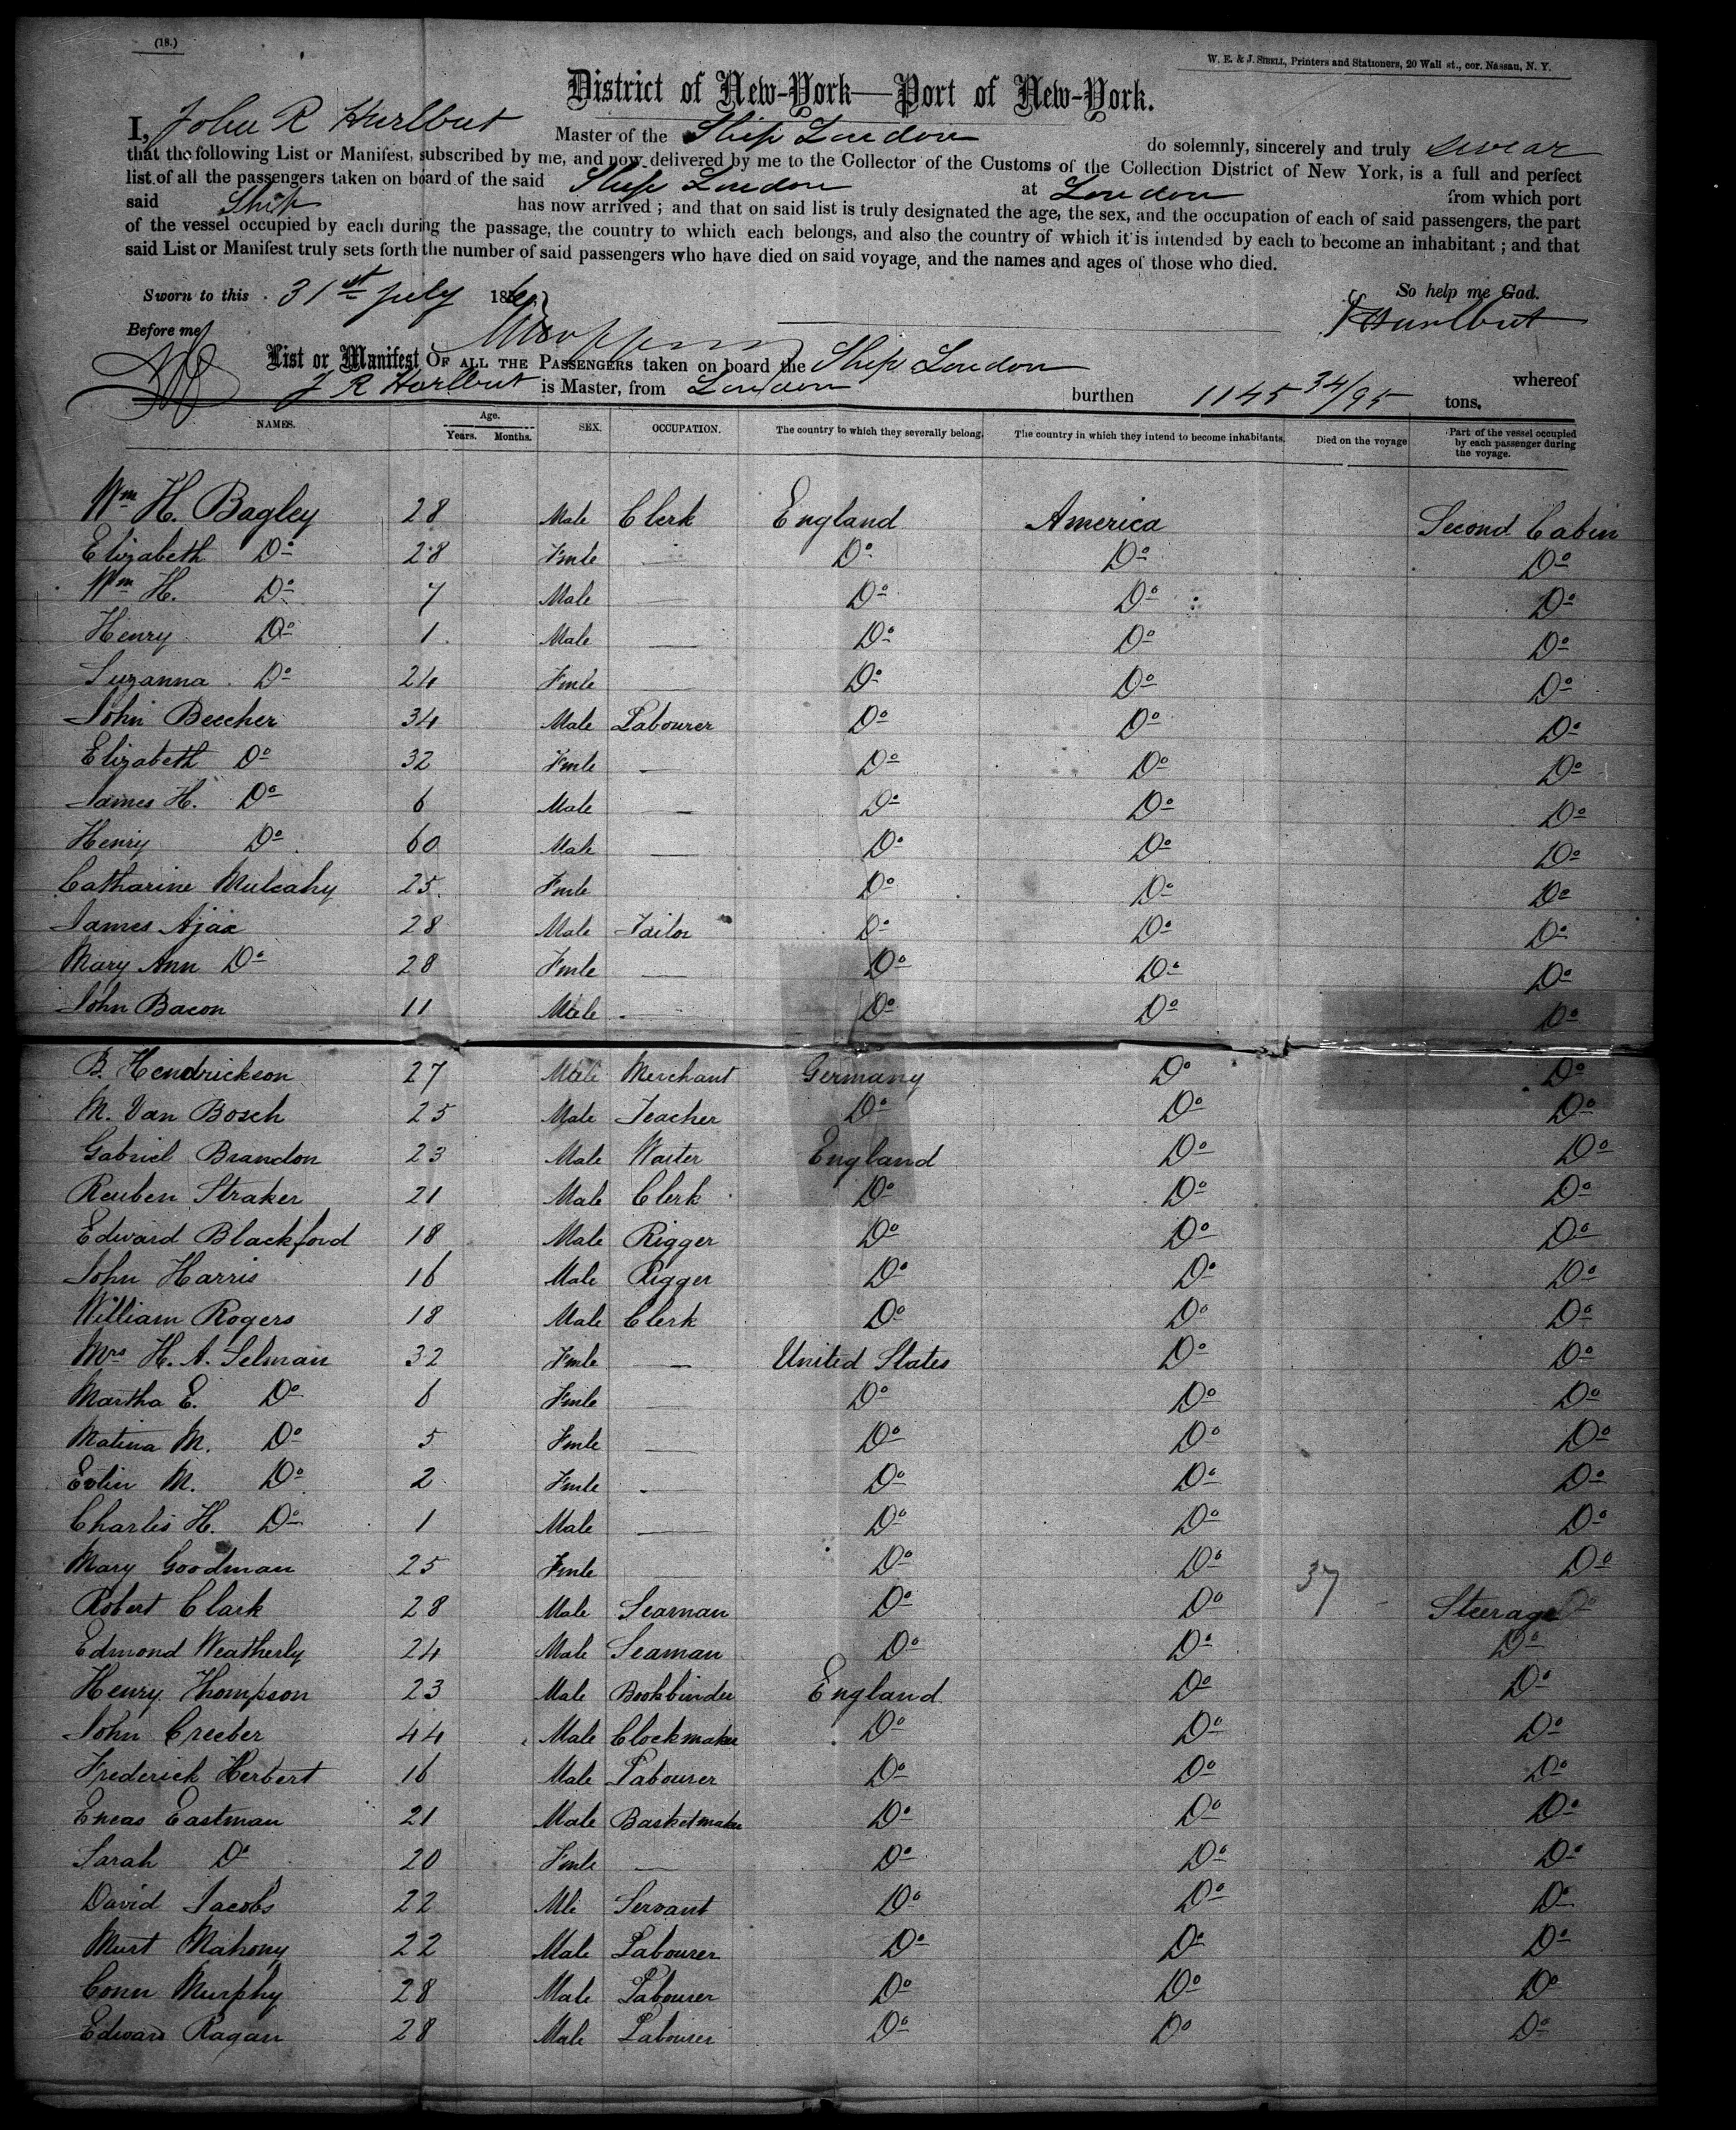 (18.)
W. E. & J. SIBELL, Printers and Stationers, 20 Wall st., cor. Nassau, N. Y.
District of New-York—Port of New-York.
I, John R Hurlbut Master of the Ship London do solemnly, sincerely and truly swear
that the following List or Manifest, subscribed by me, and now delivered by me to the Collector of the Customs of the Collection District of New York, is a full and perfect
list of all the passengers taken on board of the said Ship London at London from which port
said Ship has now arrived; and that on said list is truly designated the age, the sex, and the occupation of each of said passengers, the part
of the vessel occupied by each during the passage, the country to which each belongs, and also the country of which it is intended by each to become an inhabitant; and that
said List or Manifest truly sets forth the number of said passengers who have died on said voyage, and the names and ages of those who died.
Sworn to this 31st July 186 So help me God.
Before me J R Hurlbut
List or Manifest OF ALL THE PASSENGERS taken on board the Ship London whereof
J R Hurlbut is Master, from London burthen 1145 34/95 tons.
NAMES. Age. Years. Months. SEX. OCCUPATION. The country to which they severally belong. The country in which they intend to become inhabitants. Died on the voyage Part of the vessel occupied by each passenger during the voyage.
Wm H. Bagley 28 Male Clerk England America Second Cabin
Elizabeth Do 28 Fmle — Do Do Do
Wm H. Do 7 Male — Do Do Do
Henry Do 1 Male — Do Do Do
Suzanna Do 24 Fmle — Do Do Do
John Beecher 34 Male Labourer Do Do Do
Elizabeth Do 32 Fmle — Do Do Do
James H. Do 6 Male — Do Do Do
Henry Do 60 Male — Do Do Do
Catharine Mulcahy 25 Fmle Do Do Do
James Ajax 28 Male Tailor Do Do Do
Mary Ann Do 28 Fmle — Do Do Do
John Bacon 11 Male — Do Do Do
B. Hendrickson 27 Male Merchant Germany Do Do
M. Van Bosch 25 Male Teacher Do Do Do
Gabriel Brandon 23 Male Waiter England Do Do
Reuben Straker 21 Male Clerk Do Do Do
Edward Blackford 18 Male Rigger Do Do Do
John Harris 16 Male Rigger Do Do Do
William Rogers 18 Male Clerk Do Do Do
Mrs H. A. Selman 32 Fmle — United States Do Do
Martha E. Do 6 Fmle — Do Do Do
Matina M. Do 5 Fmle — Do Do Do
Evlin M. Do 2 Fmle — Do Do Do
Charles H. Do 1 Male — Do Do Do
Mary Goodman 25 Fmle — Do Do Do
Robert Clark 28 Male Seaman Do Do 37 Steerage
Edmond Weatherly 24 Male Seaman Do Do Do
Henry Thompson 23 Male Bookbinder England Do Do
John Creeber 44 Male Clockmaker Do Do Do
Frederick Herbert 16 Male Labourer Do Do Do
Eneas Eastman 21 Male Basketmaker Do Do Do
Sarah Do 20 Fmle — Do Do Do
David Jacobs 22 Mle Servant Do Do Do
Murt Mahony 22 Male Labourer Do Do Do
Conn Murphy 28 Male Labourer Do Do Do
Edward Ragan 28 Male Labourer Do Do Do